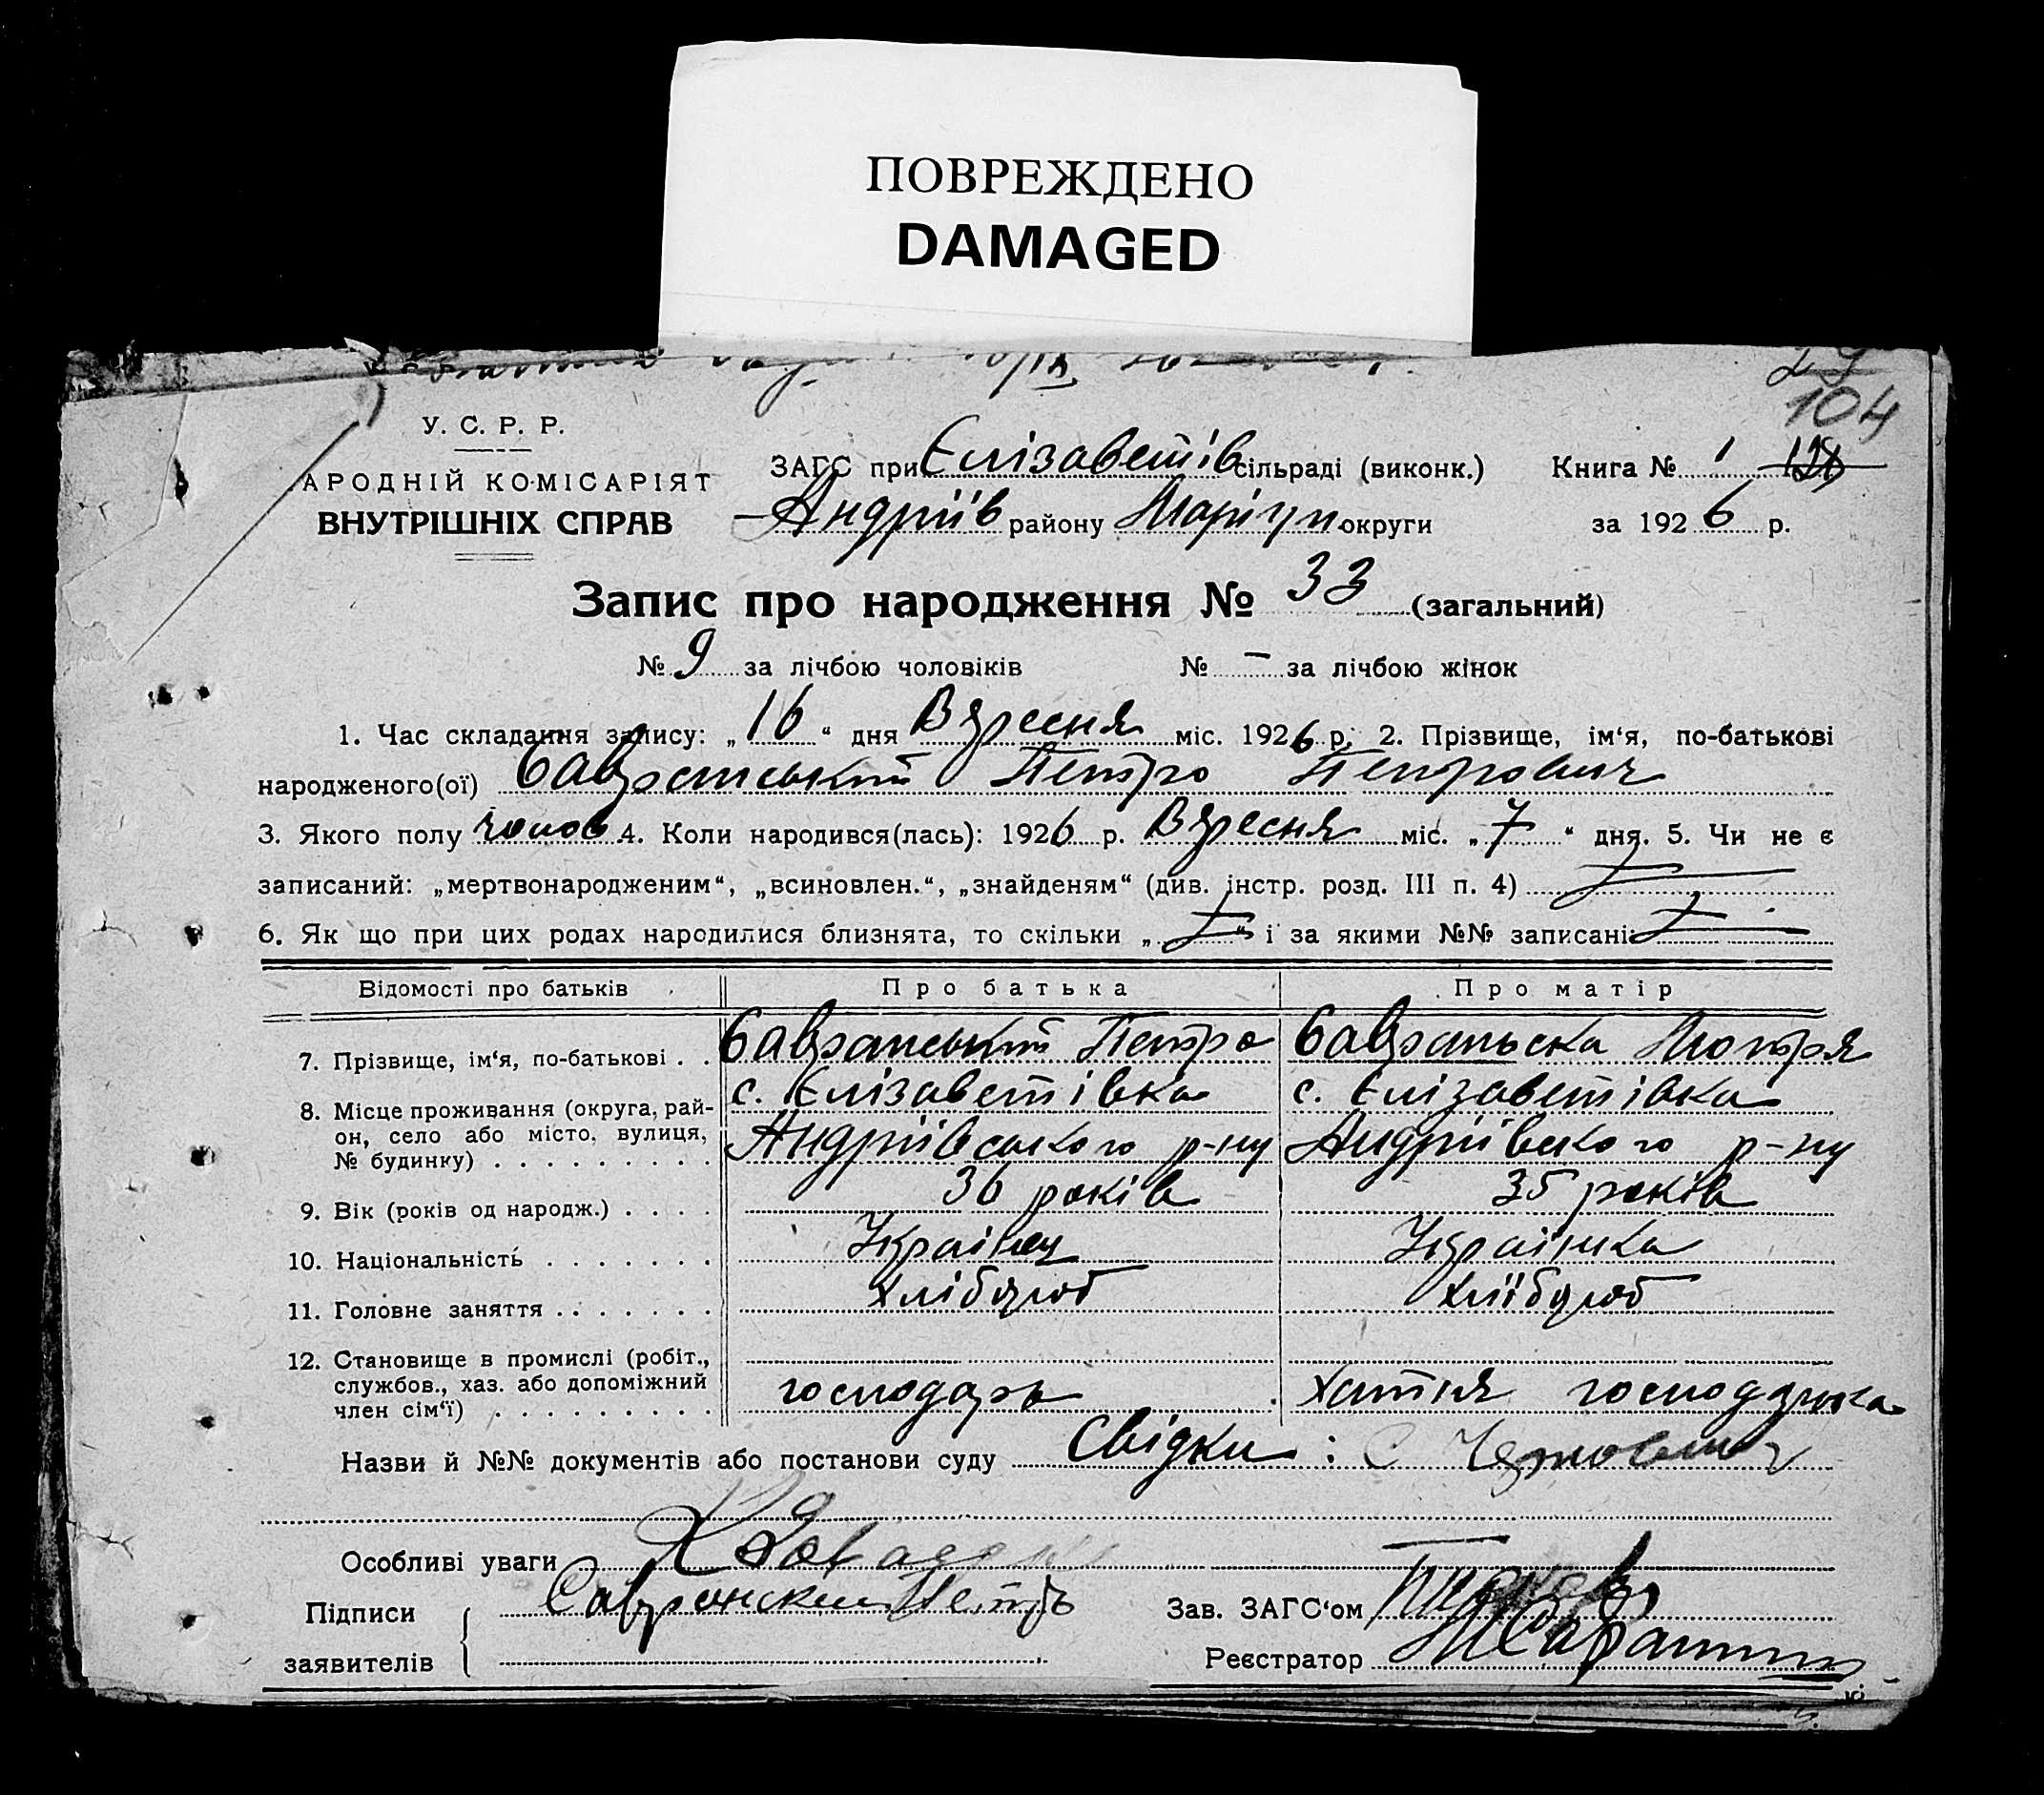 ПОВРЕЖДЕНО
DAMAGED
104
У. С. Р. Р.
АРОДНІЙ КОМІСАРІЯТ
ВНУТРІШНІХ СПРАВ
ЗАГС при Єлізаветів сільраді (виконк.) Книга № 1
Андріїв району Маріуп. округи за 1926 р.
Запис про народження № 33 (загальний)
№ 9 за лічбою чоловіків № — за лічбою жінок
1. Час складання запису: „16“ дня Вересня міс. 1926 р. 2. Прізвище, ім‘я, по-батькові
народженого(ої) Савранський Петро Петрович
3. Якого полу чолов 4. Коли народився(лась): 1926 р. Вересня міс. „7“ дня. 5. Чи не є
записаний: „мертвонародженим“, „всиновлен.“, „знайденям“ (див. інстр. розд. III п. 4)
6. Як що при цих родах народилися близнята, то скільки „ “ і за якими №№ записані:
Відомості про батьків Про батька Про матір
7. Прізвище, ім‘я, по-батькові . . Савранський Петро Савранська Мотря
8. Місце проживання (округа, рай-
он, село або місто, вулиця,
№ будинку) . . . . . . . . . с. Єлізаветівка Андріївського р-ну с. Єлізаветівка Андріївского р-ну
9. Вік (років од народж.) . . . . 36 років 35 років
10. Національність . . . . . . . Українец Українка
11. Головне заняття . . . . . . . Хлібороб Хліїбороб
12. Становище в промислі (робіт.,
службов., хаз. або допоміжний
член сім‘ї) . . . . . . . . . господарь хатня господарка
Назви й №№ документів або постанови суду Свідки: С
Особливі уваги
Підписи Савранский Петръ Зав. ЗАГС‘ом
заявителів Реєстратор